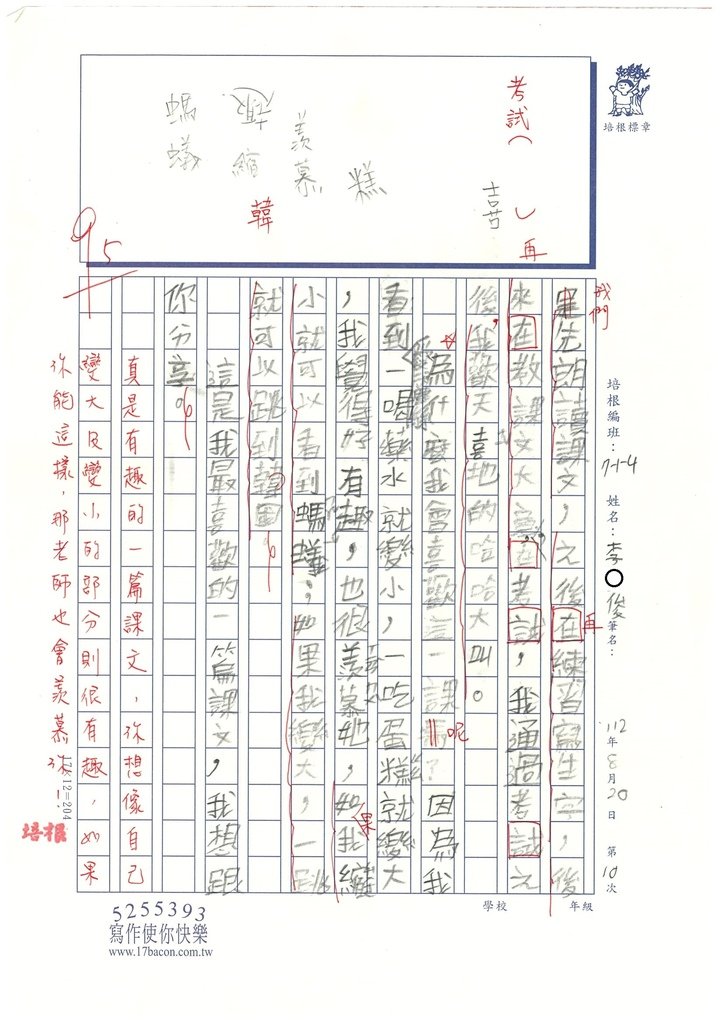 培根標章
考試（　）再
喜
糕
羨慕
韓
縮
螞蟻
95
培根編班：7-1-4　姓名：李○俊　筆名：
112年8月20日　第10次
學校　年級
我們
先朗讀課文，之後在練習寫生字，後
再
來在教課文大　在考試，我通過考試之
後，我歡天喜地的哈哈大叫。
為什麼我會喜歡這一課　呢？因為我
看到一喝藥水就變小，一吃蛋糕就變大
，我覺得好有趣，也很羨慕她，如果我縮
小就可以看到螞蟻，如果我變大，一跳
就可以跳到韓國。
這是我最喜歡的一篇課文，我想跟
你分享。
真是有趣的一篇課文，你想像自己
變大及變小的部分則很有趣，如果
你能這樣，那老師也會羨慕你！
17×12=204
培根
5255393
寫作使你快樂
www.17bacon.com.tw